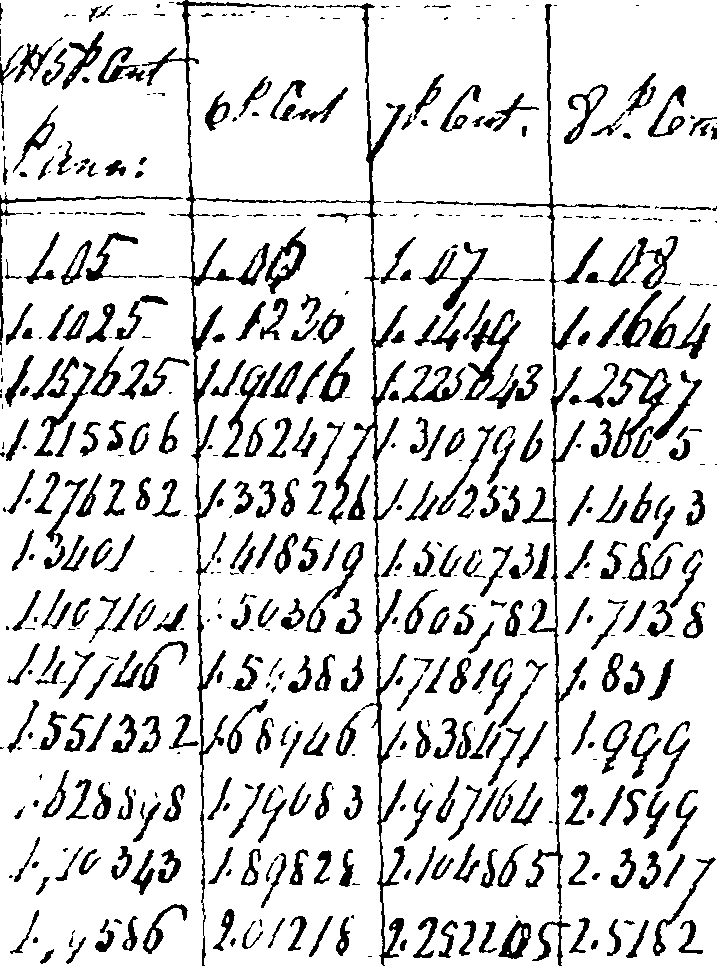 5 P. Cent 6 P. Cent 7 P. Cent. 8 P. Cen
P. Ann:
1.05 1.06 1.07 1.08
1.1025 1.1236 1.1449 1.1664
1.157625 1.191016 1.225043 1.2597
1.215506 1.262477 1.310796 1.3605
1.276282 1.338226 1.402552 1.4693
1.3401 1.418519 1.500731 1.5869
1.407104 .50363 1.605782 1.7138
1.47746 1.718197 1.851
1.551332 1.68946 1.838471 1.999
1.628898 1.79083 1.967164 2.1599
1.89828 2.104865 2.3317
2.01218 2.5182